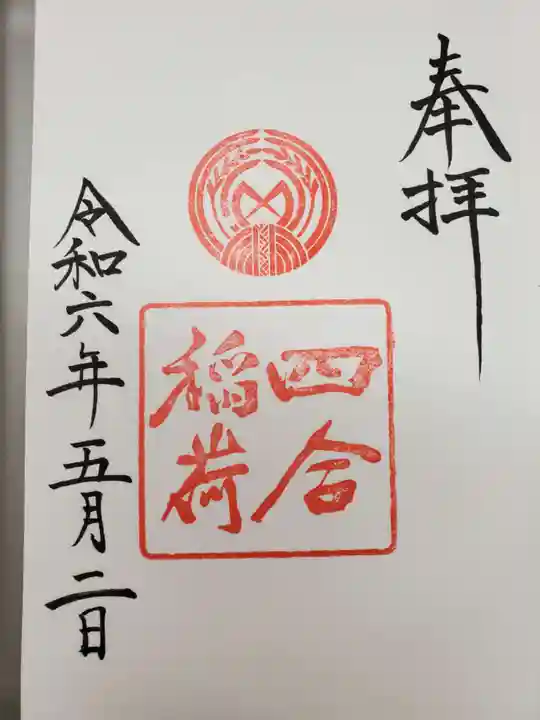 奉拝
四合
稲荷
令和六年五月二日